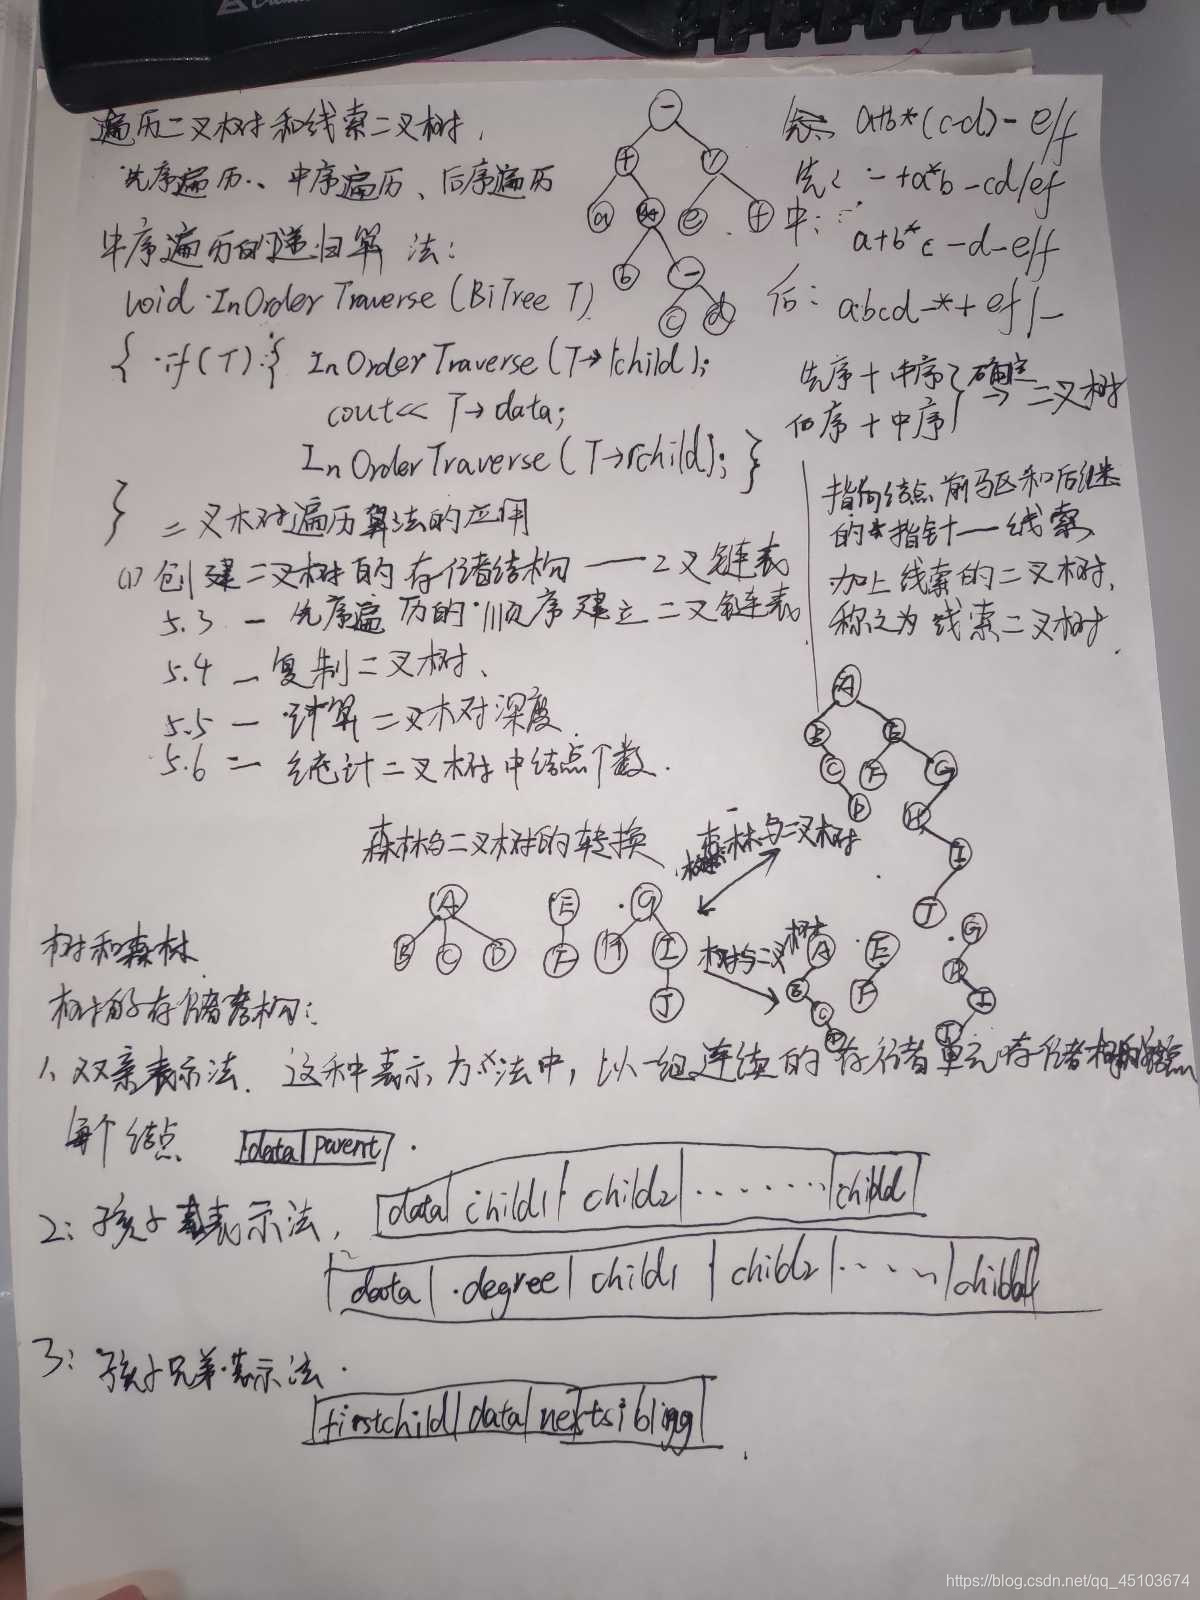 遍历二叉树和线索二叉树,
先序遍历、中序遍历、后序遍历
中序遍历的递归算法:
void InOrderTraverse(BiTree T)
{ if(T) { InOrderTraverse(T→lchild);
cout<< T→data;
InOrderTraverse(T→rchild); }
}
− + / a * e f b − c d
a+b*(c-d)-e/f
先: -+a*b-cd/ef
中:
a+b*c-d-e/f
后: abcd-*+ef/-
先序+中序
后序+中序
} 确定 → 二叉树
指向结点前驱和后继
的指针——线索
加上线索的二叉树,
称之为线索二叉树.
二叉树遍历算法的应用
(1) 创建二叉树的存储结构——二叉链表
5.3 — 先序遍历的顺序建立二叉链表
5.4 — 复制二叉树、
5.5 — 计算二叉树深度.
5.6 — 统计二叉树中结点个数.
A B E C F G D H I J
森林与二叉树的转换
森林与二叉树
A B C D E F G H I J
树与二叉树
A B C D E F G H I J
树和森林
树的存储结构:
1、双亲表示法. 这种表示方法中,以一组连续的存储单元存储树的结点
每个结点 data parent.
2: 孩子表示法, data child1 child2 ······ childd
data degree child1 child2 ····· childd
3: 孩子兄弟表示法.
firstchild data nextsibling
https://blog.csdn.net/qq_45103674